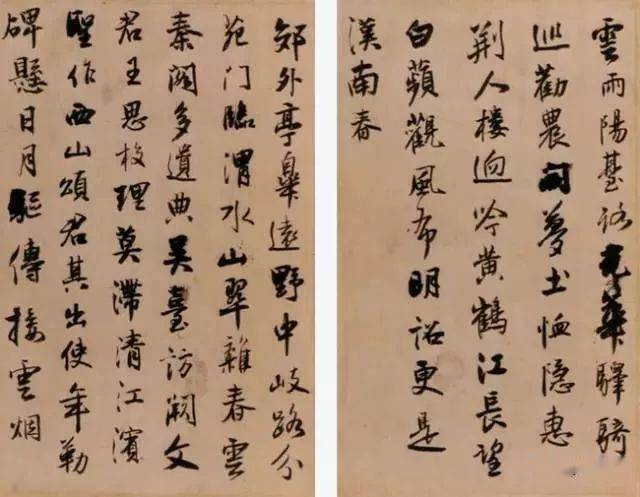 雲雨陽臺路光華驛騎
巡勸農開夢土恤隱惠
荆人樓迥吟黄鶴江長望
白蘋觀風布明詔更是
漢南春
郊外亭皋遠野中岐路分
苑门臨渭水山翠雜春雲
秦閣多遺典吴臺訪闕文
君王思校理莫滯清江濱
聖作西山頌君其出使年勒
碑懸日月驅傳接雲烟